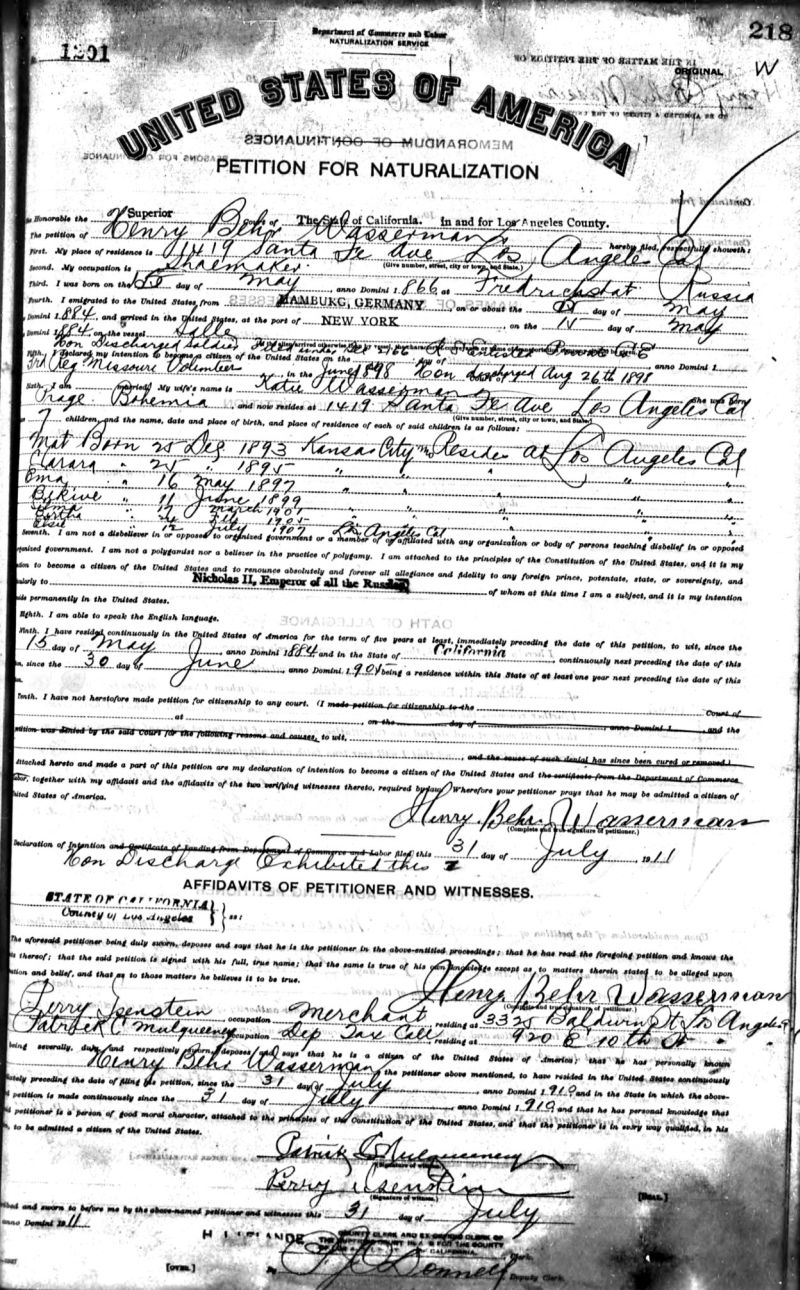 Department of Commerce and Labor
NATURALIZATION SERVICE
1201
218
ORIGINAL
W
UNITED STATES OF AMERICA
PETITION FOR NATURALIZATION
Honorable the Superior Court of The State of California. In and for Los Angeles County.
The petition of Henry Behr Wasserman hereby filed, respectfully showeth:
First. My place of residence is 1419 Santa Fe Ave Los Angeles Cal
(Give number, street, city or town, and State.)
Second. My occupation is Shoemaker
Third. I was born on the day of May anno Domini 1866 at Fredrichstat Russia
Fourth. I emigrated to the United States from HAMBURG, GERMANY, on or about the day of May
Domini 1884 and arrived in the United States, at the port of NEW YORK, on the day of May
Domini 1884 on the vessel Salle
Hon Discharged Soldier under Sec 2166 R S Enlisted Private Co C
Fifth. I declared my intention to become a citizen of the United States on the day of anno Domini 1
3rd Reg Missouri Volunteers in the June 1898 Hon discharged Aug 26th 1898
Sixth. I am married. My wife's name is Katie Wasserman she was born
Prage Bohemia and now resides at 1419 Santa Fe Ave Los Angeles Cal
(Give number, street, city or town, and State.)
7 children, and the name, date and place of birth, and place of residence of each of said children is as follows:
Mat Born 25 Dec 1893 Kansas City Mo Resides at Los Angeles Cal
Clarara " 25 " 1895 " " "
Ema " 16 May 1897 " " "
" 11 June 1899 " " "
" 17 March 1901 " " "
Bertha " Feb 1905 " " "
Elsie " 12 July 1907 Los Angeles Cal " "
Seventh. I am not a disbeliever in or opposed to organized government or a member of or affiliated with any organization or body of persons teaching disbelief in or opposed
organized government. I am not a polygamist nor a believer in the practice of polygamy. I am attached to the principles of the Constitution of the United States, and it is my
tion to become a citizen of the United States and to renounce absolutely and forever all allegiance and fidelity to any foreign prince, potentate, state, or sovereignty, and
ularly to Nicholas II, Emperor of all the Russias of whom at this time I am a subject, and it is my intention
side permanently in the United States.
Eighth. I am able to speak the English language.
Ninth. I have resided continuously in the United States of America for the term of five years at least, immediately preceding the date of this petition, to wit, since the
15 day of May anno Domini 1884 and in the State of California, continuously next preceding the date of this
since the 30 day of June anno Domini 1905 being a residence within this State of at least one year next preceding the date of this
Tenth. I have not heretofore made petition for citizenship to any court. (I made petition for citizenship to the Court of
at on the day of anno Domini 1 and the
petition was denied by the said Court for the following reasons and causes, to wit,
and the cause of such denial has since been cured or removed.)
Attached hereto and made a part of this petition are my declaration of intention to become a citizen of the United States and the certificate from the Department of Commerce
Labor, together with my affidavit and the affidavits of the two verifying witnesses thereto, required by law. Wherefore your petitioner prays that he may be admitted a citizen of
United States of America.
Henry Behr Wasserman
(Complete and true signature of petitioner.)
Declaration of Intention and Certificate of Landing from Department of Commerce and Labor filed this 31 day of July 1911
Hon Discharge Exhibited this
AFFIDAVITS OF PETITIONER AND WITNESSES.
STATE OF CALIFORNIA
County of Los Angeles ss:
The aforesaid petitioner being duly sworn, deposes and says that he is the petitioner in the above-entitled proceedings; that he has read the foregoing petition and knows the
ts thereof; that the said petition is signed with his full, true name; that the same is true of his own knowledge except as to matters therein stated to be alleged upon
tion and belief, and that as to those matters he believes it to be true.
Henry Behr Wasserman
(Complete and true signature of petitioner.)
Perry Isenstein occupation Merchant residing at 3325 Baldwin St Los Angeles
Patrick C Mulqueeney occupation Dep Tax Coll residing at 920 E 10th St "
being severally, duly, and respectively sworn, deposes and says that he is a citizen of the United States of America; that he has personally known
Henry Behr Wasserman the petitioner above mentioned, to have resided in the United States continuously
ately preceding the date of filing his petition, since the 31 day of July anno Domini 1910 and in the State in which the above-
petition is made continuously since the 31 day of July anno Domini 1910 and that he has personal knowledge that
id petitioner is a person of good moral character, attached to the principles of the Constitution of the United States, and that the petitioner is in every way qualified, in his
to be admitted a citizen of the United States.
Patrick C Mulqueeney
(Signature of witness.)
Perry Isenstein
(Signature of witness.)
[SEAL.]
ibed and sworn to before me by the above-named petitioner and witnesses this 31 day of July
anno Domini 1911
H. J. LELANDE
COUNTY CLERK AND EX-OFFICIO CLERK OF
THE SUPERIOR COURT IN AND FOR THE COUNTY
OF CALIFORNIA.
Clerk.
[OVER.]
By Donnell Deputy Clerk.